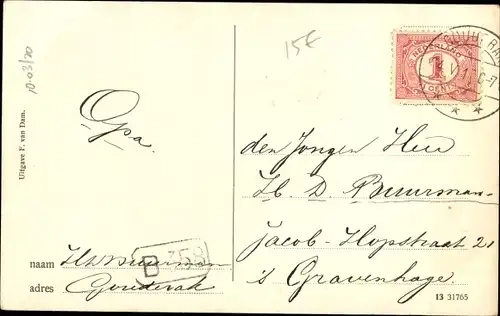 15€
10.03/20
NEDERLAND
1
CENT
Uitgave F. van Dam.
Opa.
den Jongen Heer
H. D. Buurman
Jacob-Hopstraat 21
's Gravenhage.
B 358
naam H W Buurman
adres Gouderak
13 31765